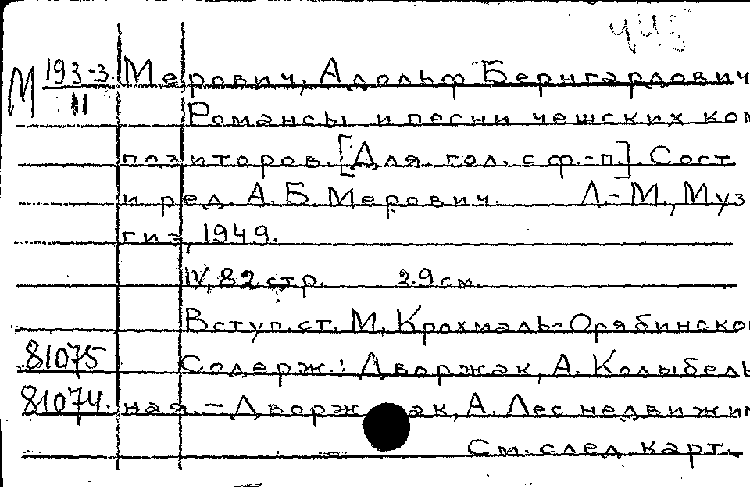 443
М 193-3 Мерович, Адольф Бернгардович
11 Романсы и песни чешских ком
позиторов. [Для. гол. с ф.-п]. Сост
и ред. А. Б. Мерович. Л.-М., Муз
гиз, 1949.
IV, 82 стр. 29 см.
Вступ. ст. М. Крахмаль-Орябинской
81075 Содерж.: Дворжак, А. Колыбель
81074. ная. - Дворжак, А. Лес недвижим
См. след. карт.